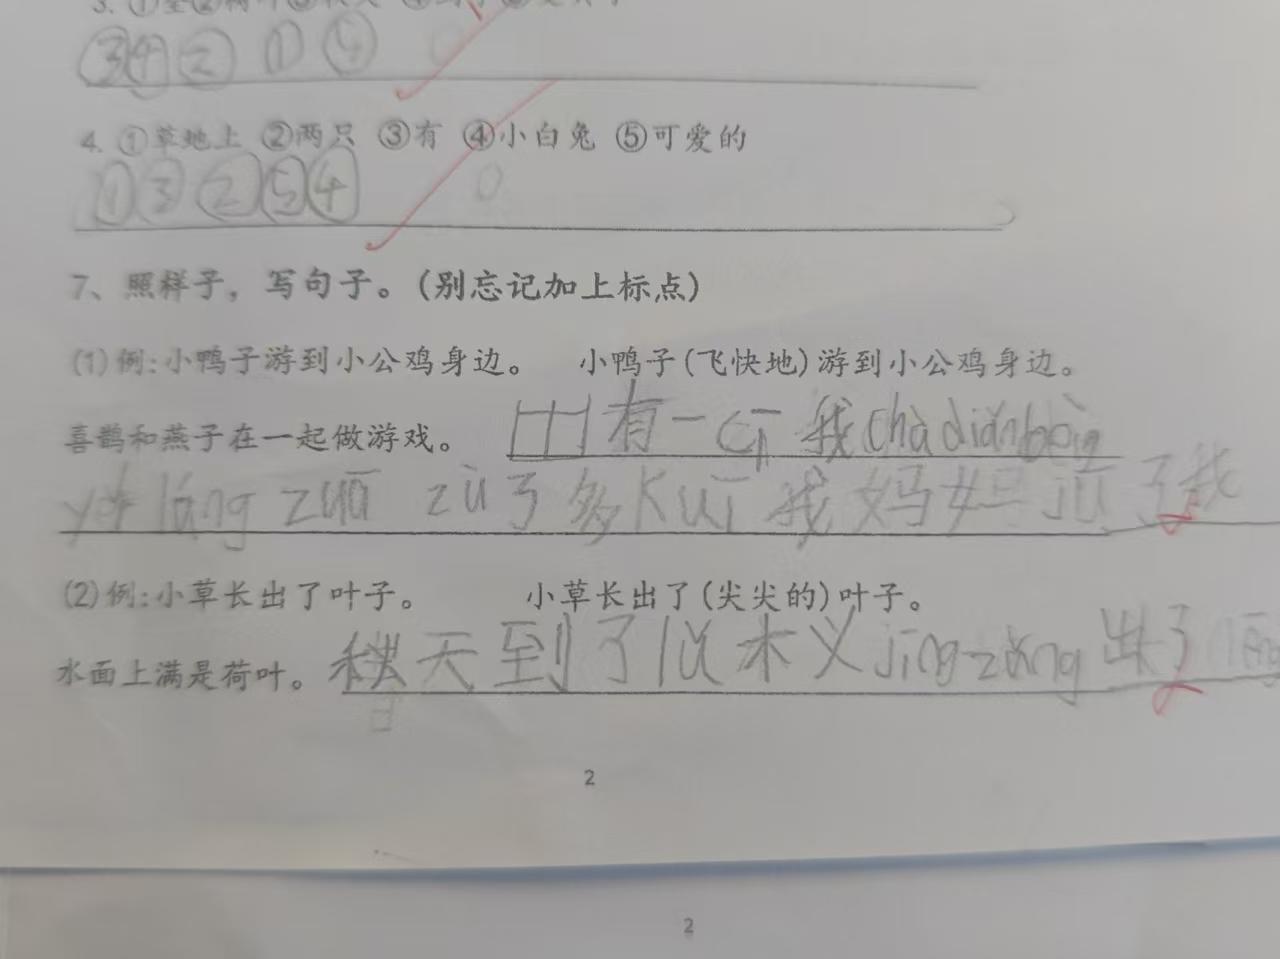 ③④② ① ⑤
4. ①草地上 ②两只 ③有 ④小白兔 ⑤可爱的
①③②⑤④
7、照样子，写句子。（别忘记加上标点）
(1)例:小鸭子游到小公鸡身边。 小鸭子(飞快地)游到小公鸡身边。
喜鹊和燕子在一起做游戏。 有一cì 我chà diǎn bèi
láng zuā zǔ了多kuī我妈妈jiù了我
(2)例:小草长出了叶子。 小草长出了(尖尖的)叶子。
水面上满是荷叶。 秋天到了 木 jīng zǎng 出了
2
2